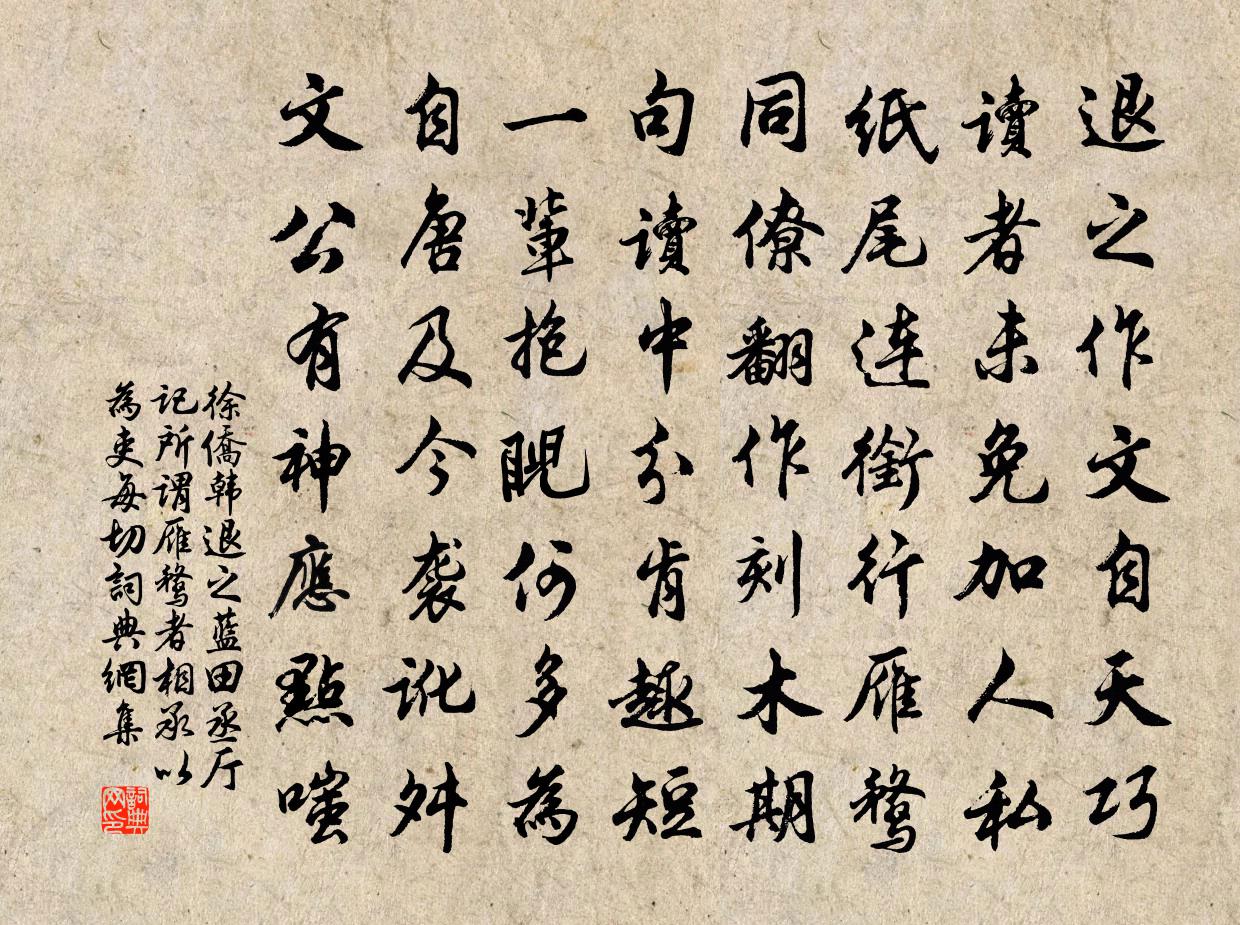 退之作文自天巧
讀者未免加人私
紙尾连銜行雁鶩
同僚翻作刻木期
句讀中分肯趣短
一輩抱睨何多為
自唐及今袭訛舛
文公有神應點嗤
徐僑韩退之藍田丞厅
記所謂雁鶩者相承以
為吏每切詞典網集
詞典
网印